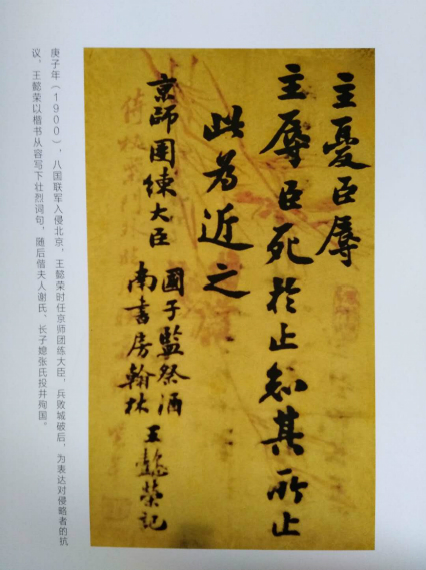 主憂臣辱
主辱臣死於止知其所止
此為近之
京師團練大臣
國子監祭酒
南書房翰林
王懿榮記
庚子年（1900），八国联军入侵北京，王懿荣时任京师团练大臣，兵败城破后，为表达对侵略者的抗
议，王懿荣以楷书从容写下壮烈词句，随后偕夫人谢氏、长子媳张氏投井殉国。